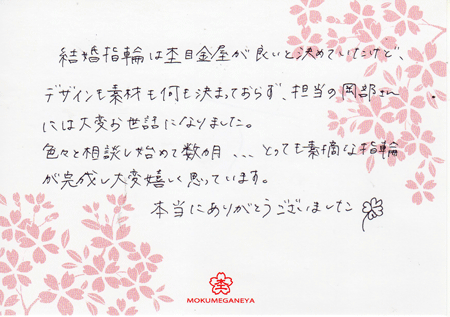 結婚指輪は杢目金屋が良いと決めていたけど、
デザインも素材も何も決まっておらず、担当の岡部さん
には大変お世話になりました。
色々と相談し始めて数カ月、、、とっても素敵な指輪
が完成し大変嬉しく思っています。
本当にありがとうございました
杢
MOKUMEGANEYA